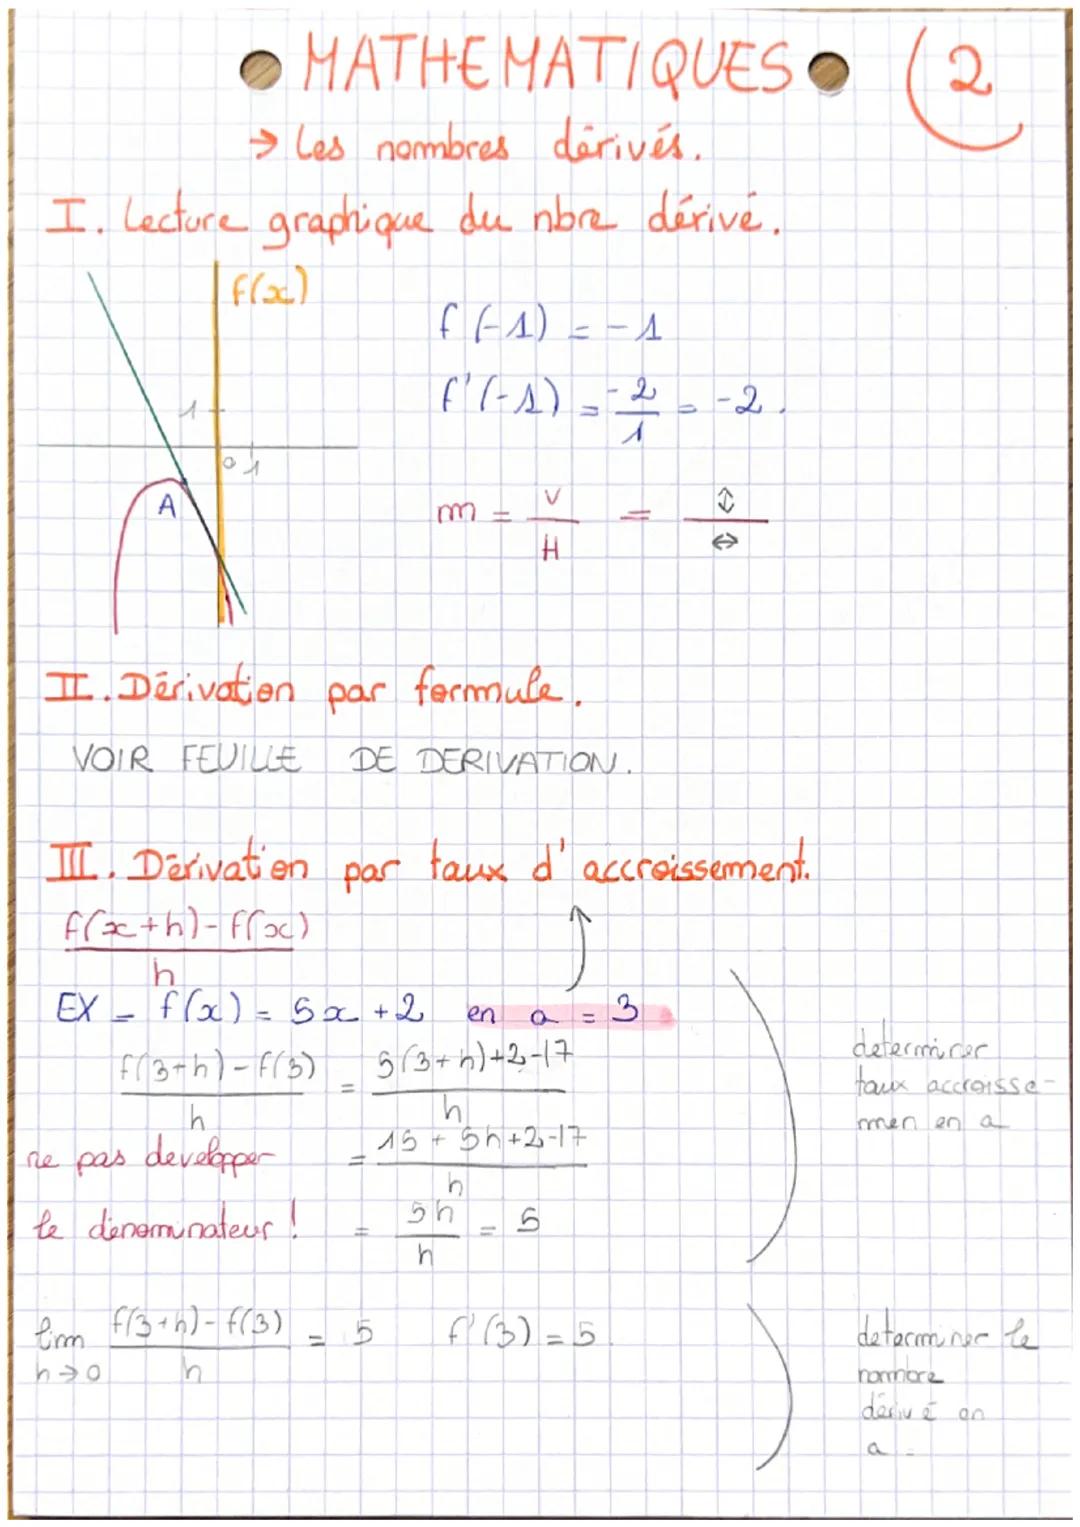 MATHEMATIQUES
2
→ Les nombres dérivés.
I. Lecture graphique du nbre dérivé.
f(x)
f(-1) = -1
f'(-1) = -2/1 = -2.
1
0 1
A
m = V/H = ⇕/⇔
II. Dérivation par formule.
VOIR FEUILLE DE DERIVATION.
III. Dérivation par taux d'accroissement.
f(x+h)-f(x)
h
EX - f(x) = 5x +2 en a = 3
f(3+h)-f(3) = 5(3+h)+2-17
h h
ne pas developper = 15 + 5h+2-17
h
le dénominateur ! = 5h/h = 5
determiner
taux accroisse-
men en a
lim f(3+h)-f(3) = 5 f'(3) = 5.
h→0 h
determiner le
nombre
dérivé en
a.